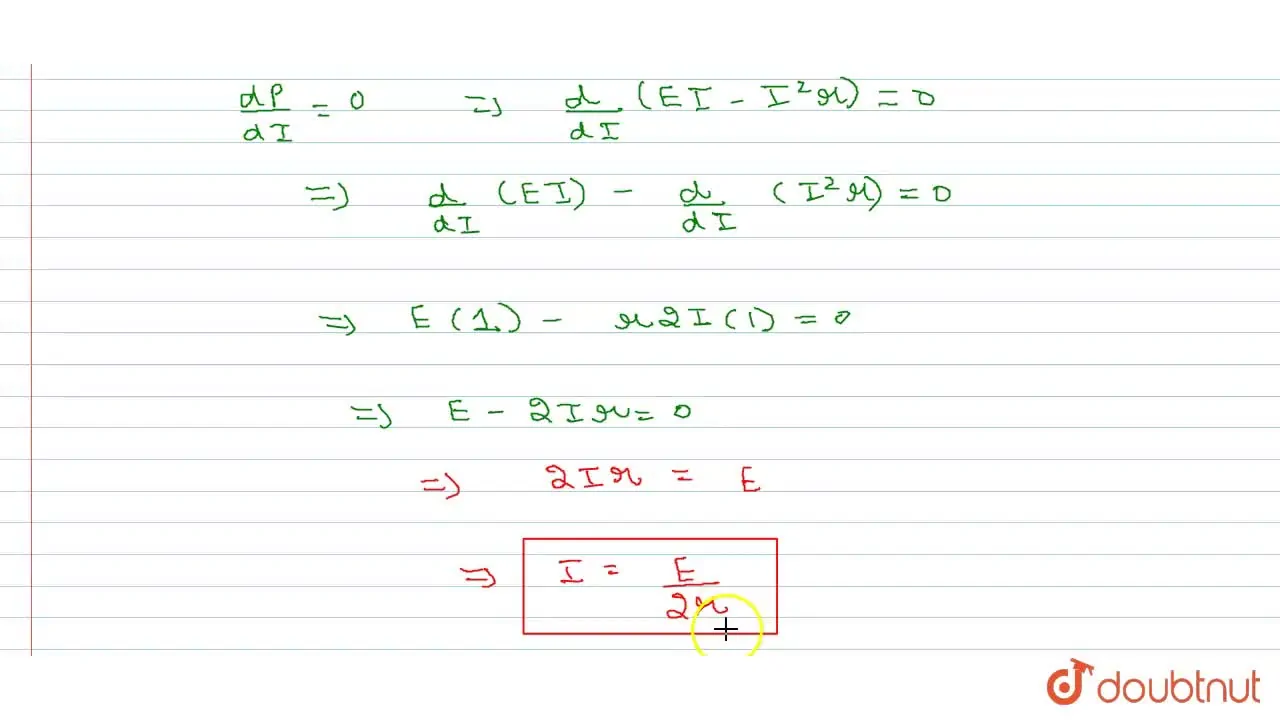 dP/dI = 0 ⇒ d/dI (EI - I²r) = 0
⇒ d/dI (EI) - d/dI (I²r) = 0
⇒ E(1) - r2I(1) = 0
⇒ E - 2Ir = 0
⇒ 2Ir = E
⇒ I = E/2r
doubtnut